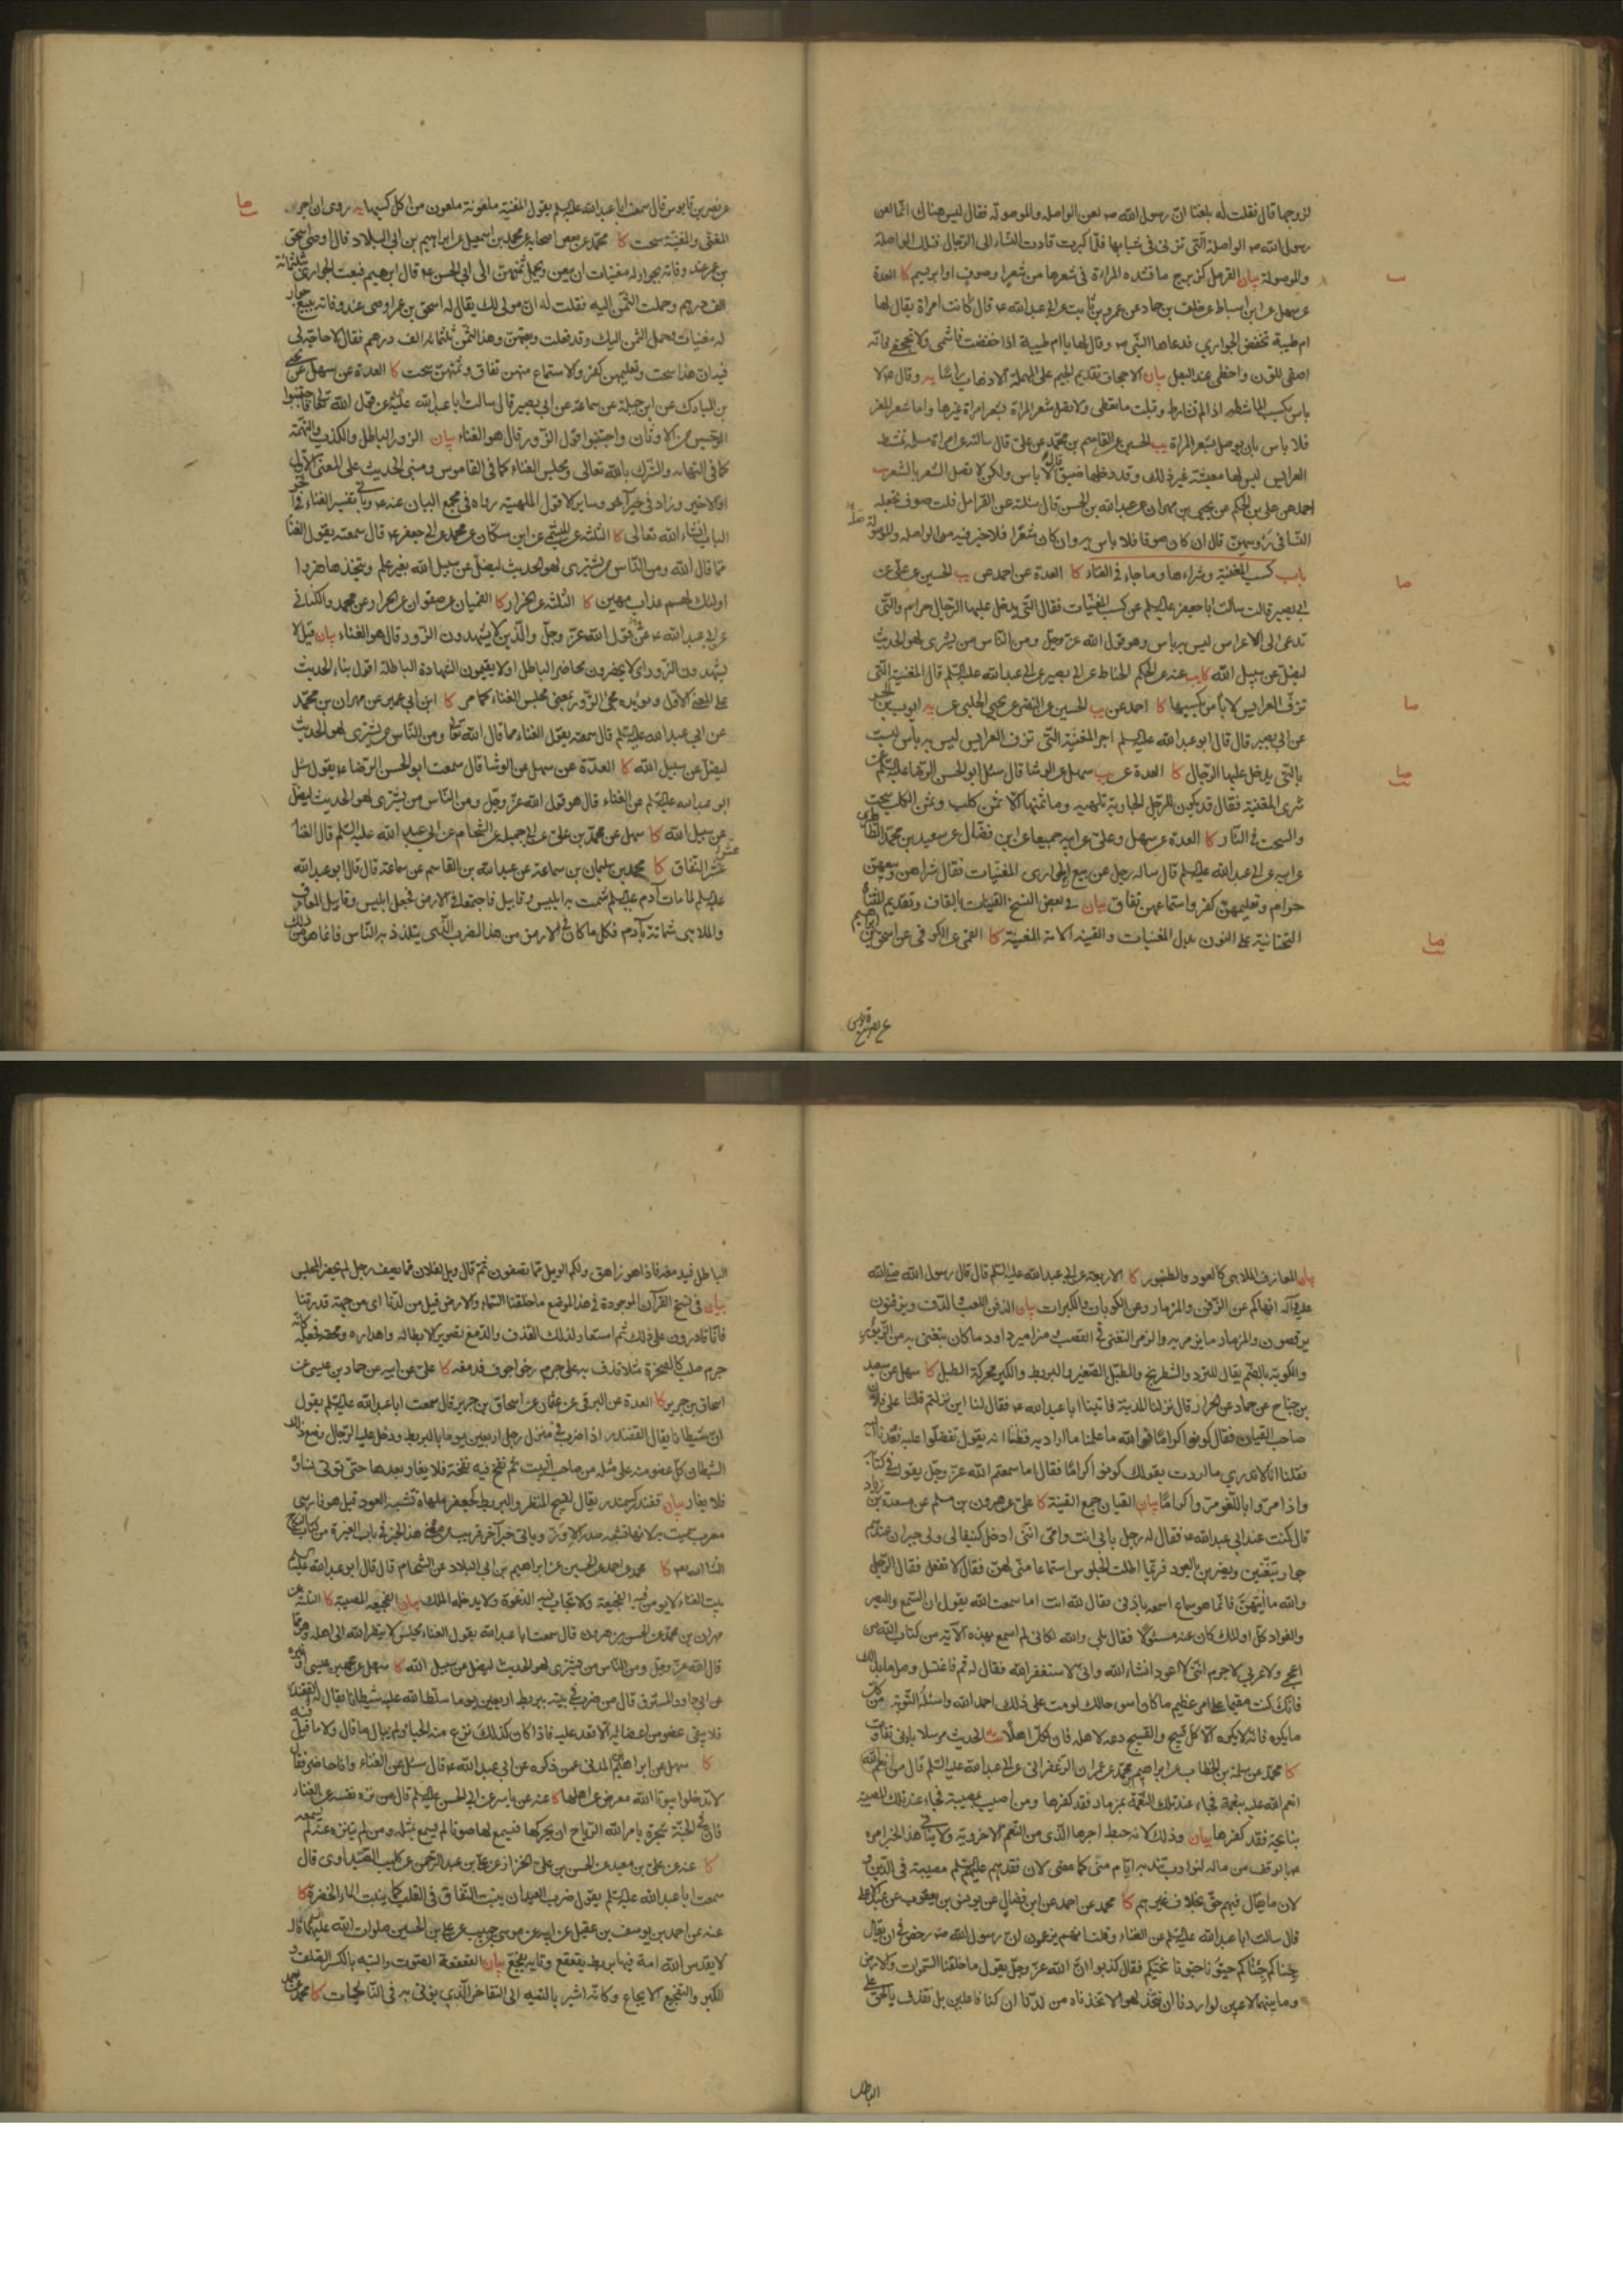 لزوجها قال فقلت له بلغنا ان رسول الله ص لعن الواصلة والموصولة فقال ليس هناك انما لعن
رسول الله ص الواصلة التي تزنى في شبابها فلما كبرت قادت النساء الى الرجال فتلك الواصلة
والموصولة بيان القرمل كزبرج ما تشده المراة في شعرها من شعر او صوف او ابريسم كا العدة
عن سهل عن ابن اسباط عن خلف بن حماد عن عمرو بن ثابت عن ابي عبد الله ع قال كانت امراة يقال لها
ام طيبة تخفض الجواري فدعاها النبي ص وقال لها يا ام طيبة اذا خفضت فاشمي ولا تجحفي فانه
اصفى للون واحظى عند البعل بيان الاجحاف تقديم الجيم على المهملة الاذهاب يه وقال ع لا
باس بكسب الماشطة اذا لم تشارط وقبلت ما تعطى ولا تصل شعر المراة بشعر امراة غيرها واما شعر المعز
فلا باس بان يوصل بشعر المراة يب الحسين عن القاسم بن محمد عن علي قال سالته عن امراة مسلمة تمشط
العرايس ليس لها معيشة غير ذلك وقد دخلها ضيق قال لا باس ولكن لا تصل الشعر بالشعر يب
احمد عن علي بن الحكم عن يحيى بن مهران عن عبد الله بن الحسن قال سئلته عن القرامل قلت صوف تجعله
النسا في رؤسهن قال ان كان صوفا فلا باس به وان كان شعرا فلا خير فيه من الواصلة والموصولة
باب كسب المغنية وشراءها وما جاء في الغناء كا العدة عن احمد عن يب الحسين عن علي عن
ابي بصير قال سالت ابا جعفر عليه السلم عن كسب المغنيات فقال التي يدخل عليها الرجال حرام والتي
تدعى الى الاعراس ليس به باس وهو قول الله عز وجل ومن الناس من يشترى لهو الحديث
ليضل عن سبيل الله كا يب عنه عن الحكم الحناط عن ابي بصير عن ابي عبد الله عليه السلم قال المغنية التي
تزف العرايس لا باس بكسبها كا احمد عن يب الحسين عن النضر عن يحيى الحلبي عن يه ايوب بن الحر
عن ابي بصير قال قال ابو عبد الله عليه السلم اجر المغنية التي تزف العرايس ليس به باس ليست
بالتي يدخل عليها الرجال كا العدة عن يب سهل عن الوشا قال سئل ابو الحسن الرضا عليه السلم عن
شرى المغنية فقال قد يكون للرجل الجارية تلهيه وما ثمنها الا ثمن كلب وثمن الكلب سحت
والسحت في النار كا العدة عن سهل وعلي عن ابيه جميعا عن ابن فضال عن سعيد بن محمد الطاطري
عن ابيه عن ابي عبد الله عليه السلم قال ساله رجل عن بيع الجواري المغنيات فقال شراهن وبيعهن
حرام وتعليمهن كفر واستماعهن نفاق بيان في بعض النسخ القينات بالقاف وتقديم المثناة
التحتانية على النون بدل المغنيات والقينة الامة المغنية كا القمي عن الكوفي عن اسحق بن ابراهيم
عن نصر بن قابوس
عن نصر بن قابوس قال سمعت ابا عبد الله عليه السلم يقول المغنية ملعونة ملعون من اكل كسبها يه روى ان اجر
المغني والمغنية سحت كا محمد عن بعض اصحابه عن محمد بن اسمعيل عن ابراهيم بن ابي البلاد قال اوصى اسحق
بن عمر عند وفاته بجوار له مغنيات ان يبعن ويحمل ثمنهن الى ابي الحسن ع قال ابرهيم فبعت الجواري بثلثمائة
الف درهم وحملت الثمن اليه فقلت له ان مولى لك يقال له اسحق بن عمر اوصى عند وفاته ببيع جوار
له مغنيات وحمل الثمن اليك وقد فعلت وبعتهن وهذا الثمن ثلثمائة الف درهم فقال لا حاجة لي
فيه ان هذا سحت وتعليمهن كفر والاستماع منهن نفاق وثمنهن سحت كا العدة عن سهل عن يحيى
بن المبارك عن ابن جبلة عن سماعة عن ابي بصير قال سالت ابا عبد الله عليه السلم عن قول الله تعالى فاجتنبوا
الرجس من الاوثان واجتنبوا قول الزور قال هو الغناء بيان الزور الباطل والكذب والتهمة
كما في النهاية والشرك بالله تعالى ومجلس الغناء كما في القاموس ومبنى الحديث على المعنى الاول
او الاخير وزاد في خبر اخر هو وساير الاقوال الملهية رواه في مجمع البيان عنه ع وياتي تفسير الغناء في آخر
الباب انشاء الله تعالى كا الثلثة عن الميثمي عن ابن مسكان عن محمد عن ابي جعفر ع قال سمعته يقول الغنا
مما قال الله ومن الناس من يشترى لهو الحديث ليضل عن سبيل الله بغير علم ويتخذها هزوا
اولئك لهم عذاب مهين كا الثلثة عن الخزاز كا القميان عن صفوان عن الخزاز عن محمد والكناني
عن ابي عبد الله ع عن قول الله عز وجل والذين لا يشهدون الزور قال هو الغناء بيان قيل لا
يشهدون الزور اى لا يحضرون محاضر الباطل او لا يقيمون الشهادة الباطلة اقول بناء الحديث
على المعنى الاول ويؤيده مجئ الزور بمعنى مجلس الغناء كما مر كا ابن ابي عمير عن مهران بن محمد
عن ابي عبد الله عليه السلم قال سمعته يقول الغناء مما قال الله تعالى ومن الناس من يشترى لهو الحديث
ليضل عن سبيل الله كا العدة عن سهل عن الوشا قال سمعت ابو الحسن الرضا ع يقول سئل
ابو عبد الله عليه السلم عن الغناء قال هو قول الله عز وجل ومن الناس من يشترى لهو الحديث ليضل
عن سبيل الله كا سهل عن محمد بن علي عن ابي جميلة عن الشحام عن ابي عبد الله عليه السلم قال الغنا
عش النفاق كا محمد بن سليمان بن سماعة عن عبد الله بن القاسم عن سماعة قال قال ابو عبد الله
عليه السلم لما مات آدم عليه السلم شمت به ابليس وقابيل فاجتمعا في الارض فجعل ابليس وقابيل المعازف
والملاهى شماتة بآدم فكل ما كان في الارض من هذا الضرب الذي يتلذذ به الناس فانما هو من ذلك
بيان المعازف الملاهى كالعود والطنبور كا الاربعة عن ابي عبد الله عليه السلم قال قال رسول الله صلى الله
عليه وآله انهاكم عن الزفن والمزمار وعن الكوبات والكبرات بيان الزفن اللعب والدف ويزفنون
يرقصون والمزمار ما يزمر به والزمر التغني في القصب ومزامير داود ما كان يتغنى به من الزبور
والكوبة بالضم يقال للنرد والشطرنج والطبل الصغير والبربط والكبر محركة الطبل كا سهل عن سعيد
بن جناح عن حماد عن الخزاز قال نزلنا المدينة فاتينا ابا عبد الله ع فقال لنا اين نزلتم فقلنا على فلان
صاحب القيان فقال كونوا كراما فوالله ما علمنا ما اراد به وظننا انه يقول تفضلوا عليه فعدنا اليه
فقلنا انا لا ندري ما اردت بقولك كونوا كراما فقال اما سمعتم الله عز وجل يقول في كتابه
واذا مروا باللغو مروا كراما بيان القيان جمع القينة كا علي عن هرون بن مسلم عن مسعدة بن زياد
قال كنت عند ابي عبد الله ع فقال له رجل بابي انت وامي انني ادخل كنيفا لي ولي جيران عندهم
جوار يتغنين ويضربن بالعود فربما اطلت الجلوس استماعا مني لهن فقال لا تفعل فقال الرجل
والله ما آتيهن فانما هو سماع اسمعه باذني فقال لله انت اما سمعت الله يقول ان السمع والبصر
والفواد كل اولئك كان عنه مسئولا فقال بلى والله لكاني لم اسمع بهذه الآية من كتاب الله من
اعجمي ولا عربي لا جرم انني لا اعود انشاء الله واني لاستغفر الله فقال له قم فاغتسل وصل ما بدالك
فانك كنت مقيما على امر عظيم ما كان اسوء حالك لو مت على ذلك احمد الله واسئله التوبة من كل
ما يكره فانه لا يكره الا كل قبيح والقبيح دعه لاهله فان لكل اهلا يه الحديث مرسلا بادنى تفاوت
كا محمد عن سلمة بن الخطاب عن ابراهيم بن محمد عن عمران الزعفراني عن ابي عبد الله عليه السلم قال من انعم الله
انعم الله عليه بنعمة فجاء عند تلك النعمة بمزمار فقد كفرها ومن اصيب بمصيبة فجاء عند تلك المصيبة
بنايحة فقد كفرها بيان وذلك لانه حبط اجرها الذي من النعم الاخروية ولا ينافي هذا الخبر امره
بما يوقف من ماله لنوادب تندبه ايام منى كما مضى لان فقدهم عليهم السلم مصيبة في الدين و
لان ما يقال فيهم حق بخلاف غيرهم كا محمد عن احمد عن ابن فضال عن يونس بن يعقوب عن عبد الاعلى
قال سالت ابا عبد الله عليه السلم عن الغناء وقلت انهم يزعمون ان رسول الله ص رخص في ان يقال
جئناكم جئناكم حيونا حيونا نحيكم فقال كذبوا ان الله عز وجل يقول ما خلقنا السموات والارض
وما بينهما لاعبين لو اردنا ان نتخذ لهوا لاتخذناه من لدنا ان كنا فاعلين بل نقذف بالحق على
الباطل
الباطل فيدمغه فاذا هو زاهق ولكم الويل مما تصفون ثم قال ويل لفلان مما يصف رجل لم يحضر المجلس
بيان في نسخ القرآن الموجودة في هذا الموضع ما خلقنا السماء والارض قيل من لدنا اى من جهة قدرتنا
فانا قادرون على ذلك ثم استعار لذلك القذف والدمغ تصوير لابطاله واهداره ومحقه فجعله كانه
جرم صلب كالصخرة مثلا قذف به على جرم رخو اجوف فدمغه كا علي عن ابيه عن حماد بن عيسى عن
اسحاق بن جرير كا العدة عن البرقي عن عثمان عن اسحاق بن جرير قال سمعت ابا عبد الله عليه السلم يقول
ان شيطانا يقال القفندر اذا ضرب في منزل رجل اربعين يوما بالبربط ودخل عليه الرجال وضع ذلك
الشيطان كل عضو منه على مثله من صاحب البيت ثم نفخ فيه نفخة فلا يغار بعدها حتى تؤتى نساؤه
فلا يغار بيان قفندر كسمندر يقال لقبيح المنظر والبربط كجعفر ملهاة تشبه العود قيل هو فارسي
معرب سميت به لانها تشبه صدر الاوز وياتى خبر آخر قريب من هذا الخبر في باب الغيرة من كتاب النكاح
انشاء الله كا محمد عن احمد عن الحسين عن ابراهيم بن ابي البلاد عن الشحام قال قال ابو عبد الله عليه السلم
بيت الغناء لا يومن فيه الفجيعة ولا تجاب فيه الدعوة ولا يدخله الملك بيان الفجيعة المصيبة كا الثلثة عن
مهران بن محمد عن الحسن بن هرون قال سمعت ابا عبد الله يقول الغناء مجلس لا ينظر الله الى اهله وهو مما
قال الله عز وجل ومن الناس من يشترى لهو الحديث ليضل عن سبيل الله كا سهل عن محمد بن عيسى او غيره
عن ابي داود المسترق قال من ضرب في بيته بربط اربعين يوما سلط الله عليه شيطانا يقال له القفندر
فلا يبقى عضو من اعضائه الا قعد عليه فاذا كان كذلك نزع منه الحيا ولم يبال ما قال ولا ما قيل فيه
كا سهل عن ابراهيم بن محمد المدني عمن ذكره عن ابي عبد الله ع قال سئل عن الغناء وانا حاضر فقال
لا تدخلوا بيوتا الله معرض عن اهلها كا عنه عن ياسر عن ابي الحسن عليه السلم قال من نزه نفسه عن الغناء
فان في الجنة شجرة يامر الله الرياح ان يحركها فيسمع لها صوتا لم يسمع بمثله ومن لم يتنزه عنه لم يسمعه
كا عنه عن علي بن معبد عن الحسن بن علي الخزاز عن علي بن عبد الرحمن عن كليب الصيداوى قال
سمعت ابا عبد الله عليه السلم يقول ضرب العيدان ينبت النفاق في القلب كما ينبت الماء الخضرة كا
عنه عن احمد بن يوسف بن عقيل عن ابيه عن موسى بن حبيب عن علي بن الحسين صلوات الله عليهما قال
لا يقدس الله امة فيها بربط يقعقع وتايه تفجع بيان القعقعة الصوت والتيه بالكسر الصلف و
الكبر والتفجيع الايجاع وكانه اشير بالتيه الى التفاخر الذي يوتى به في النائحيات كا محمد عن